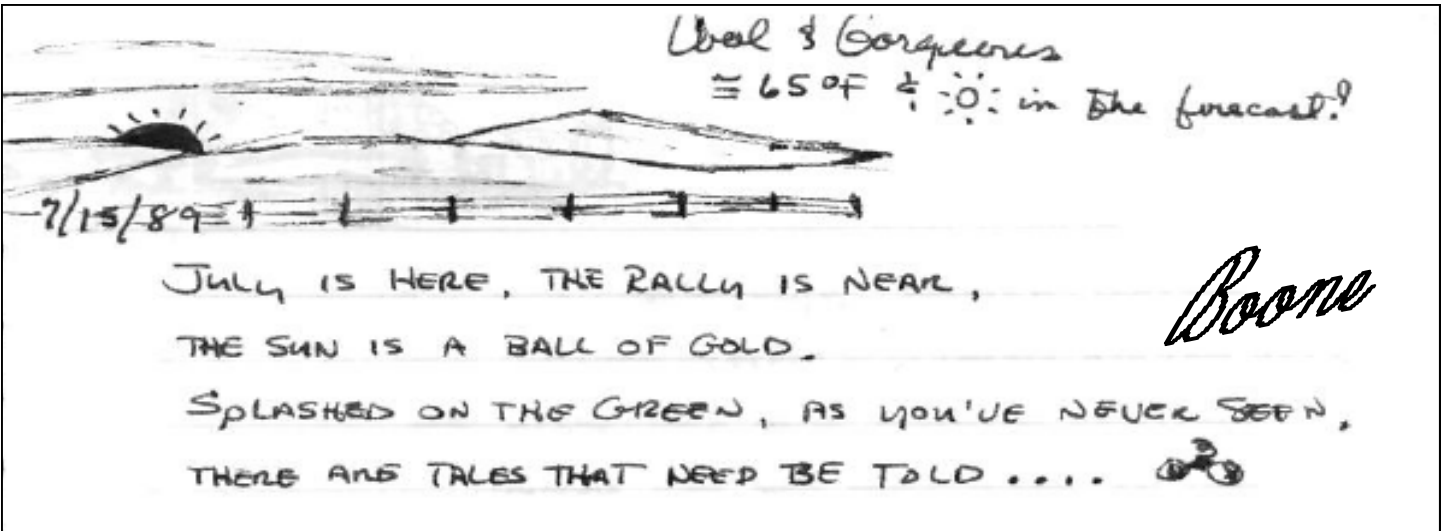 Cool & Gorgeous
≅ 65°F & ☼ in the forecast!
7/15/89
JULY IS HERE, THE RALLY IS NEAR,
Boone
THE SUN IS A BALL OF GOLD.
SPLASHED ON THE GREEN, AS YOU'VE NEVER SEEN,
THERE ARE TALES THAT NEED BE TOLD ....